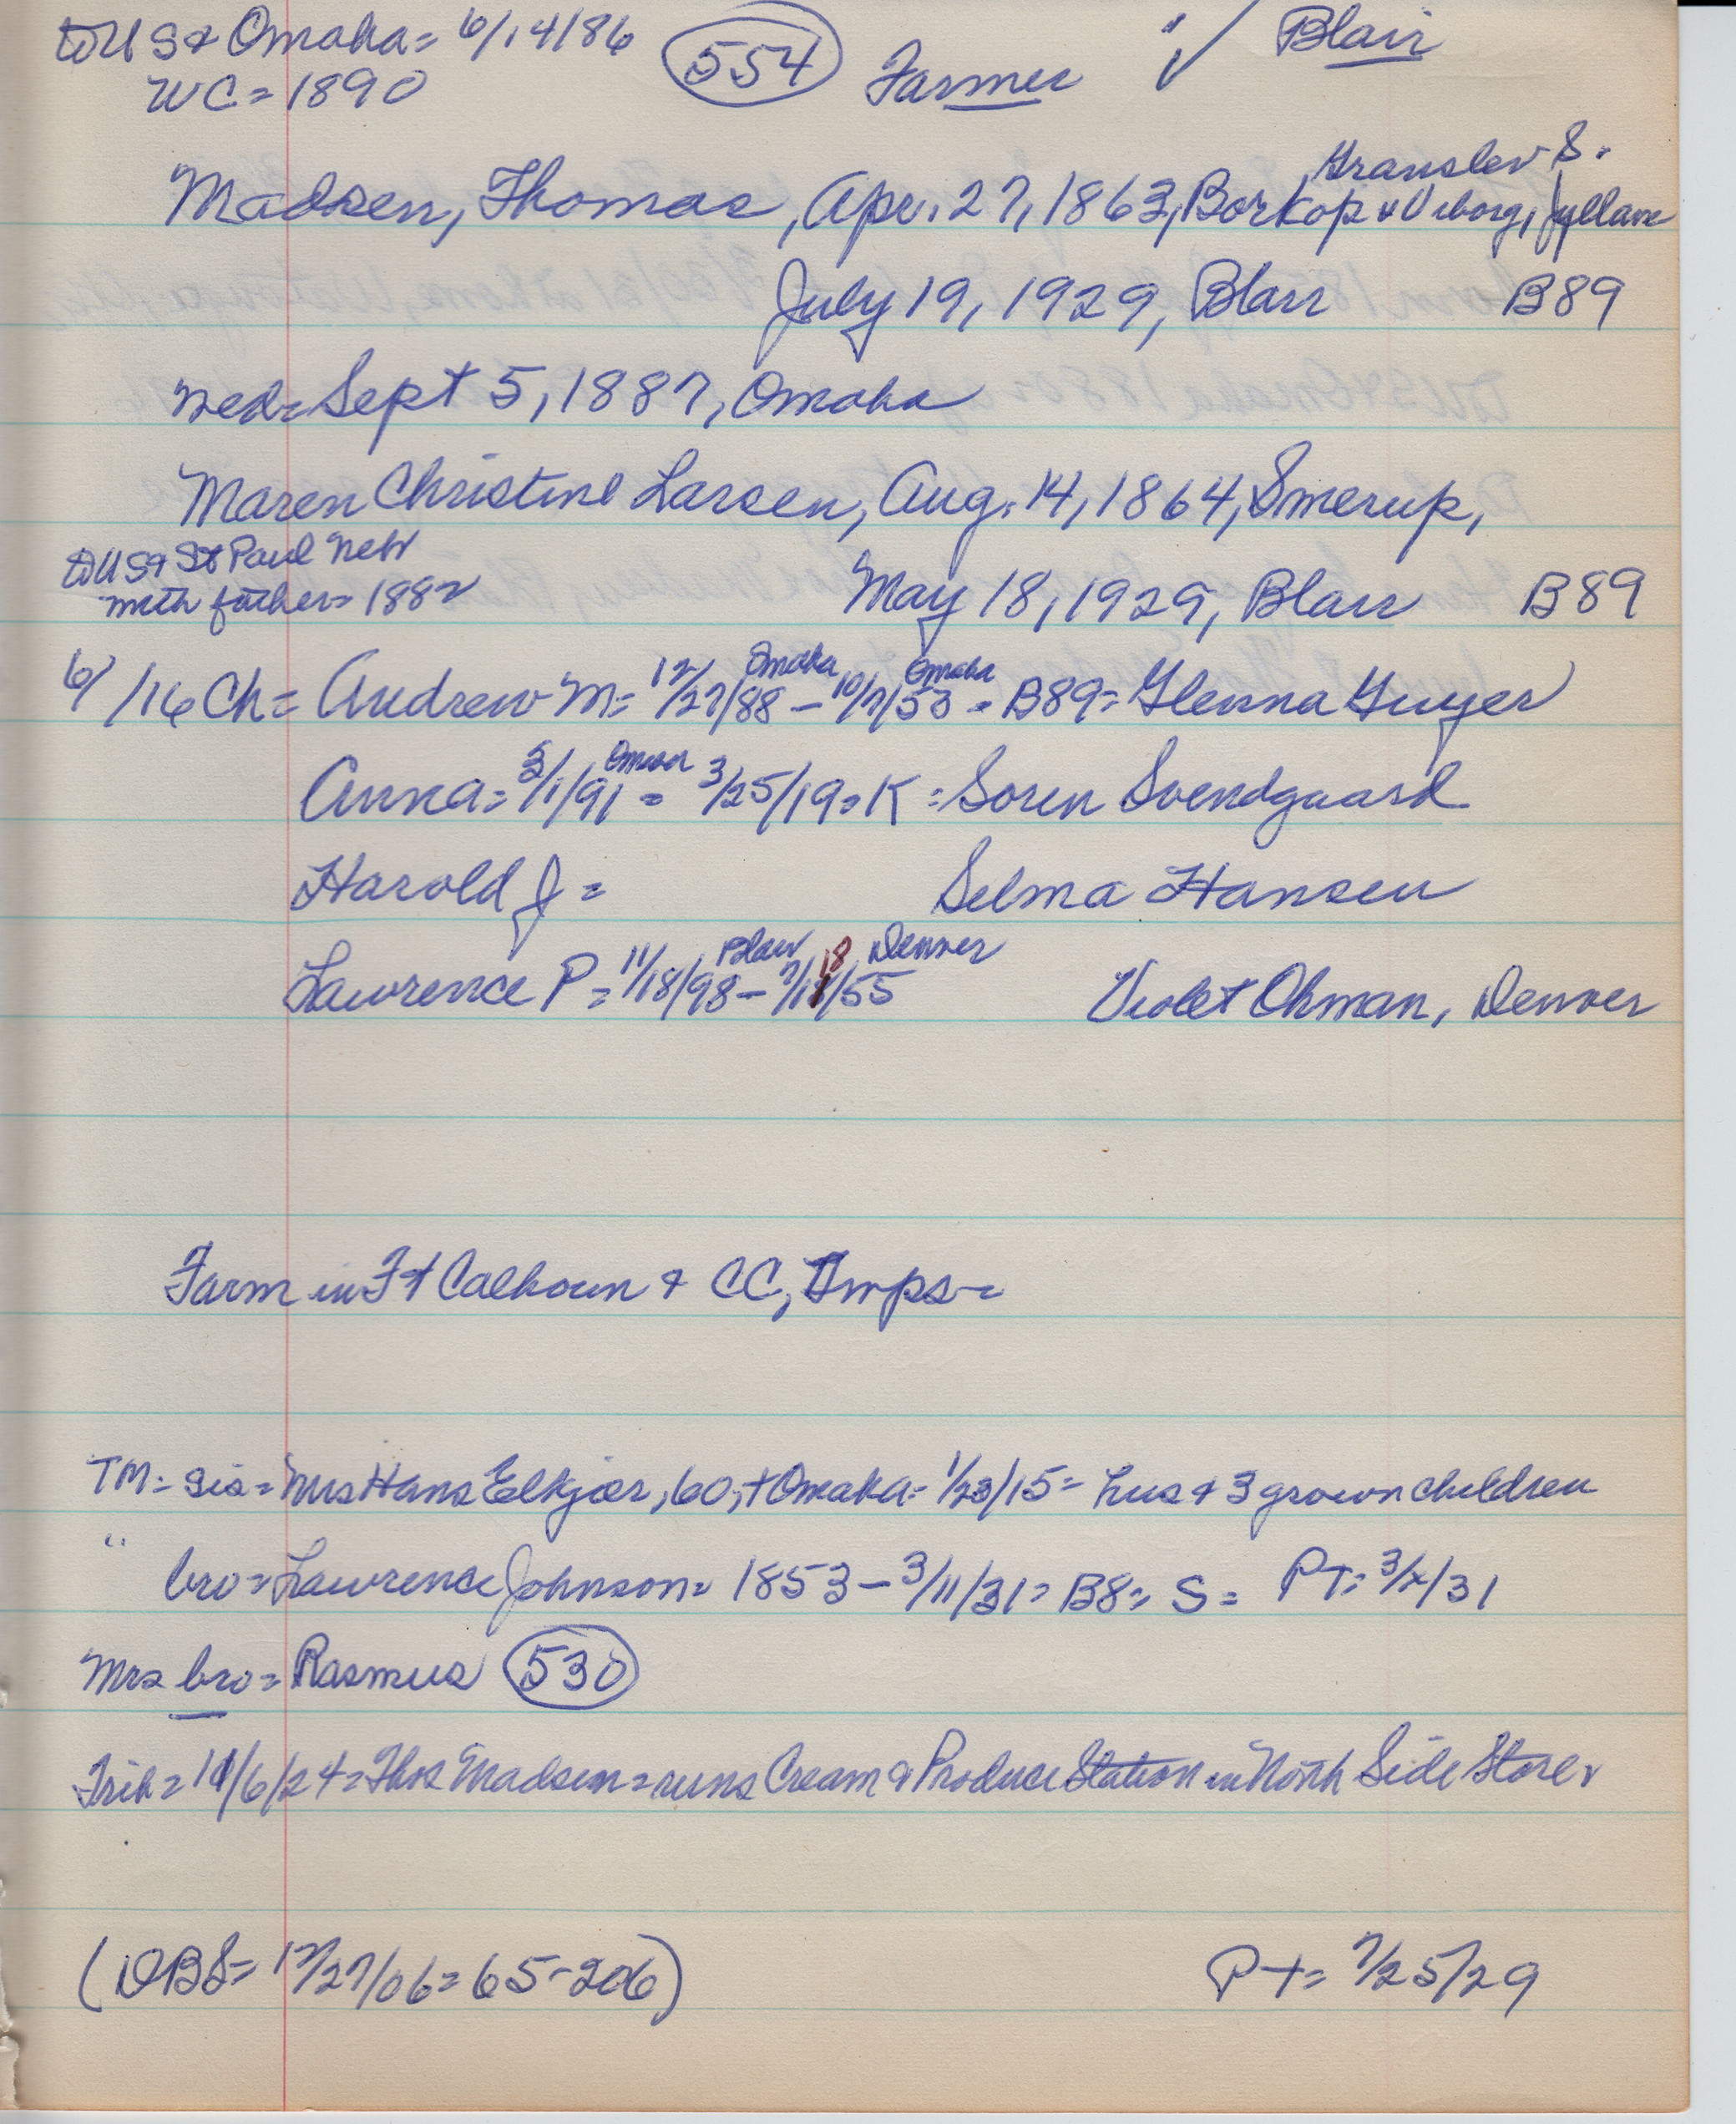 to US & Omaha = 6/14/86 (554) Farmer Blair
WC = 1890
Madsen, Thomas, Apr. 27, 1863, Borkop & Viborg, Jylland
July 19, 1929, Blair B89
wed = Sept 5, 1887, Omaha
Maren Christine Larsen, Aug. 14, 1864, Smerup,
to US & St Paul Nebr
with father = 1882 May 18, 1929, Blair B89
6/16 Ch = Andrew M = 12/27/88 Omaha - 10/7/53 Omaha = B89 = Glenna Guyer
Anna = 3/1/91 Omaha = 3/25/19 = K = Soren Svendgaard
Harold J = Selma Hansen
Lawrence P = 11/18/98 Blair - 7/18/55 Denver Violet Ohman, Denver
Farm in Ft Calhoun & CC, Twps =
TM = sis = Mrs Hans Elkjaer, 60, + Omaha = 1/23/15 = hus & 3 grown children
" bro = Lawrence Johnson = 1853 - 3/11/31 = B8 = S = PT = 3/ /31
Mrs bro = Rasmus (530)
Trib = 11/6/24 = Thos Madsen = runs Cream & Produce Station in North Side Store
(DBS = 12/27/06 = 65-206) PT = 7/25/29